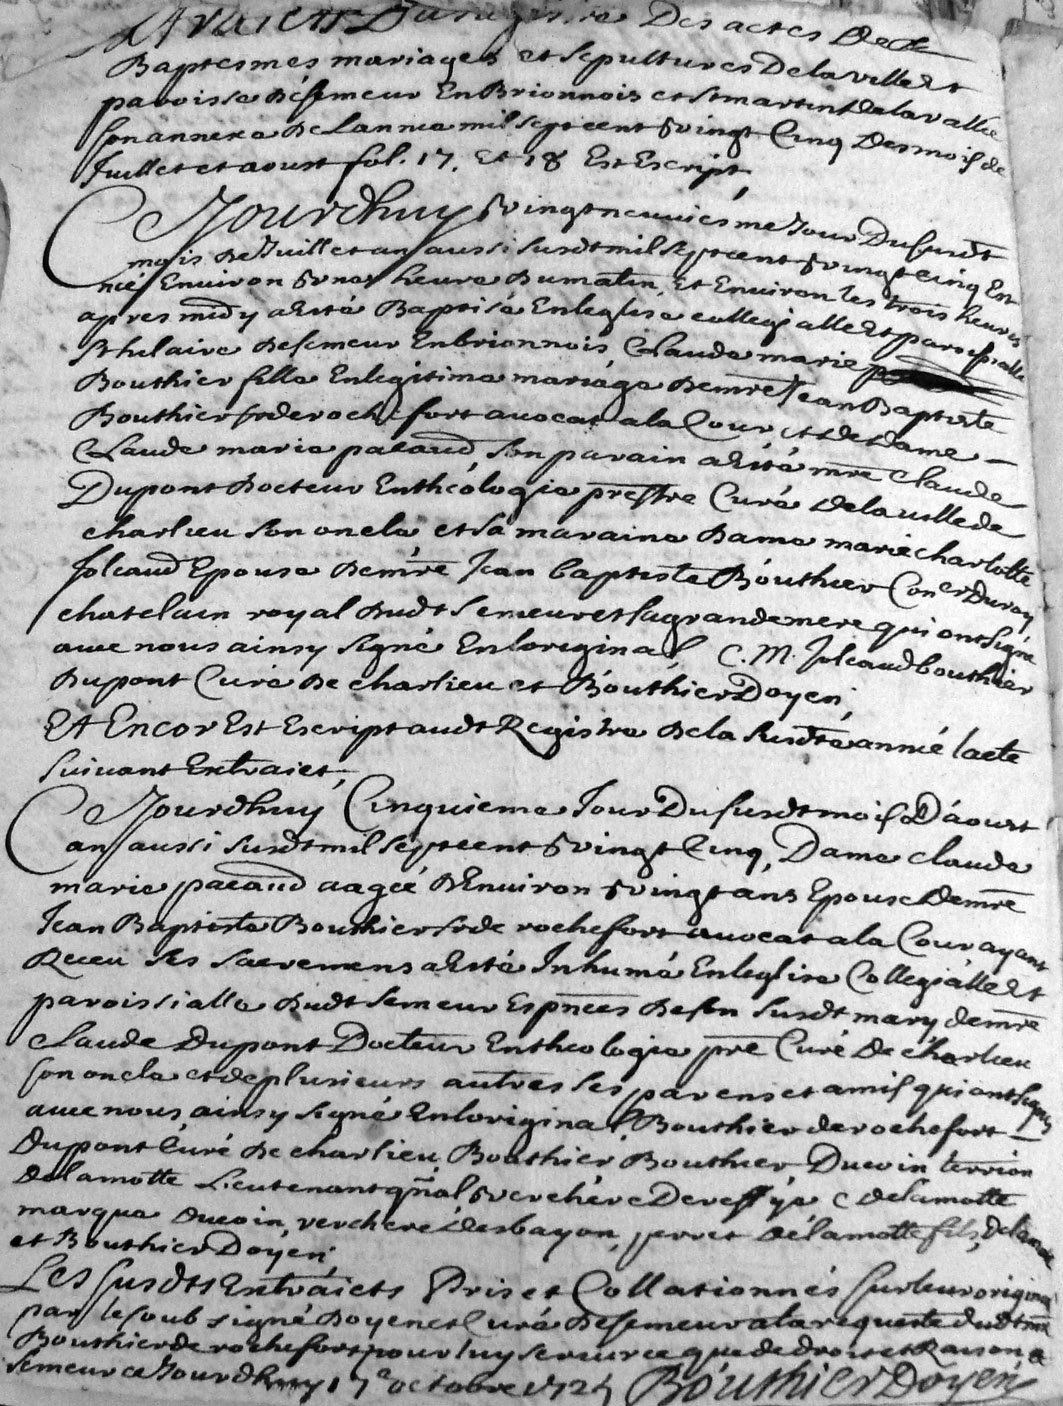 Extraicts Du registre Des actes De
Baptesmes mariages et sepultures De la ville et
paroisse de semeur En Brionnois et St martin de la vallée
son annexe de Lannee mil sept cent vingt Cinq Des mois de
Juillet et aoust fol. 17. et 18 Est Escript
Ce Jourdhuy vingt neuviesme Jour Du susdt
mois de Juillet an aussi susdt mil sept cent vingt cinq Est
née Environ une heure du matin, Et Environ les trois heures
apres midy a Esté Baptisée En leglise collegialle et paroissialle
St hilaire de semeur En brionnois, Claude marie
Bouthier fille En legitime mariage de mre Jean Baptiste
Bouthier sr de rochefort avocat a la Cour et de Dame
Claude marie pacaud, son parain a Esté mre claude
Dupont docteur En théologie prestre Curé de la ville de
charlieu son oncle et sa maraine dame marie charlotte
Joleaud Epouse de mre Jean baptiste Bouthier Coner Du roy
chatelain royal dudt semeur et sa grande mere qui ont signé
avec nous ainsy signé En loriginal C. M. Joleaud bouthier
Dupont Curé de charlieu et Bouthier Doyen,
Et Encor Est Escript audt Registre de la susdte année lacte
suivant Extraict;
Ce Jourdhuy Cinquieme Jour Du susdt mois D'aoust
an aussi susdt mil sept cent vingt Cinq, Dame claude
marie pacaud aagée d'Environ vingt ans Epouse De mre
Jean Baptiste Bouthier sr de rochefort avocat a la Cour ayant
Receu ses sacremens a Esté Inhumée En leglise Collegialle et
paroissialle dudt semeur Es pnces de son susdt mary de mre
Claude Dupont Docteur En theologie pre Curé De charlieu
son oncle et de plusieurs autres ses parens et amis qui ont signé
avec nous, ainsy signé En loriginal, Bouthier de rochefort
Dupont Curé de charlieu, Bouthier Bouthier Ducoin terrion
Delamotte Lieutenant gñal verchere De reffye C delamotte
marque Ducoin, verchere desbayon, perret delamotte fils,
et Bouthier Doyen,
Les susdts Extraicts Pris et Collationnés sur leur original
par le soub signé Doyen et Curé de semeur a la requeste dudt mre
Bouthier de rochefort pour luy servir ce que de droit et Raison a
semeur ce Jourdhuy 17e octobre 1725 Bouthier Doyen